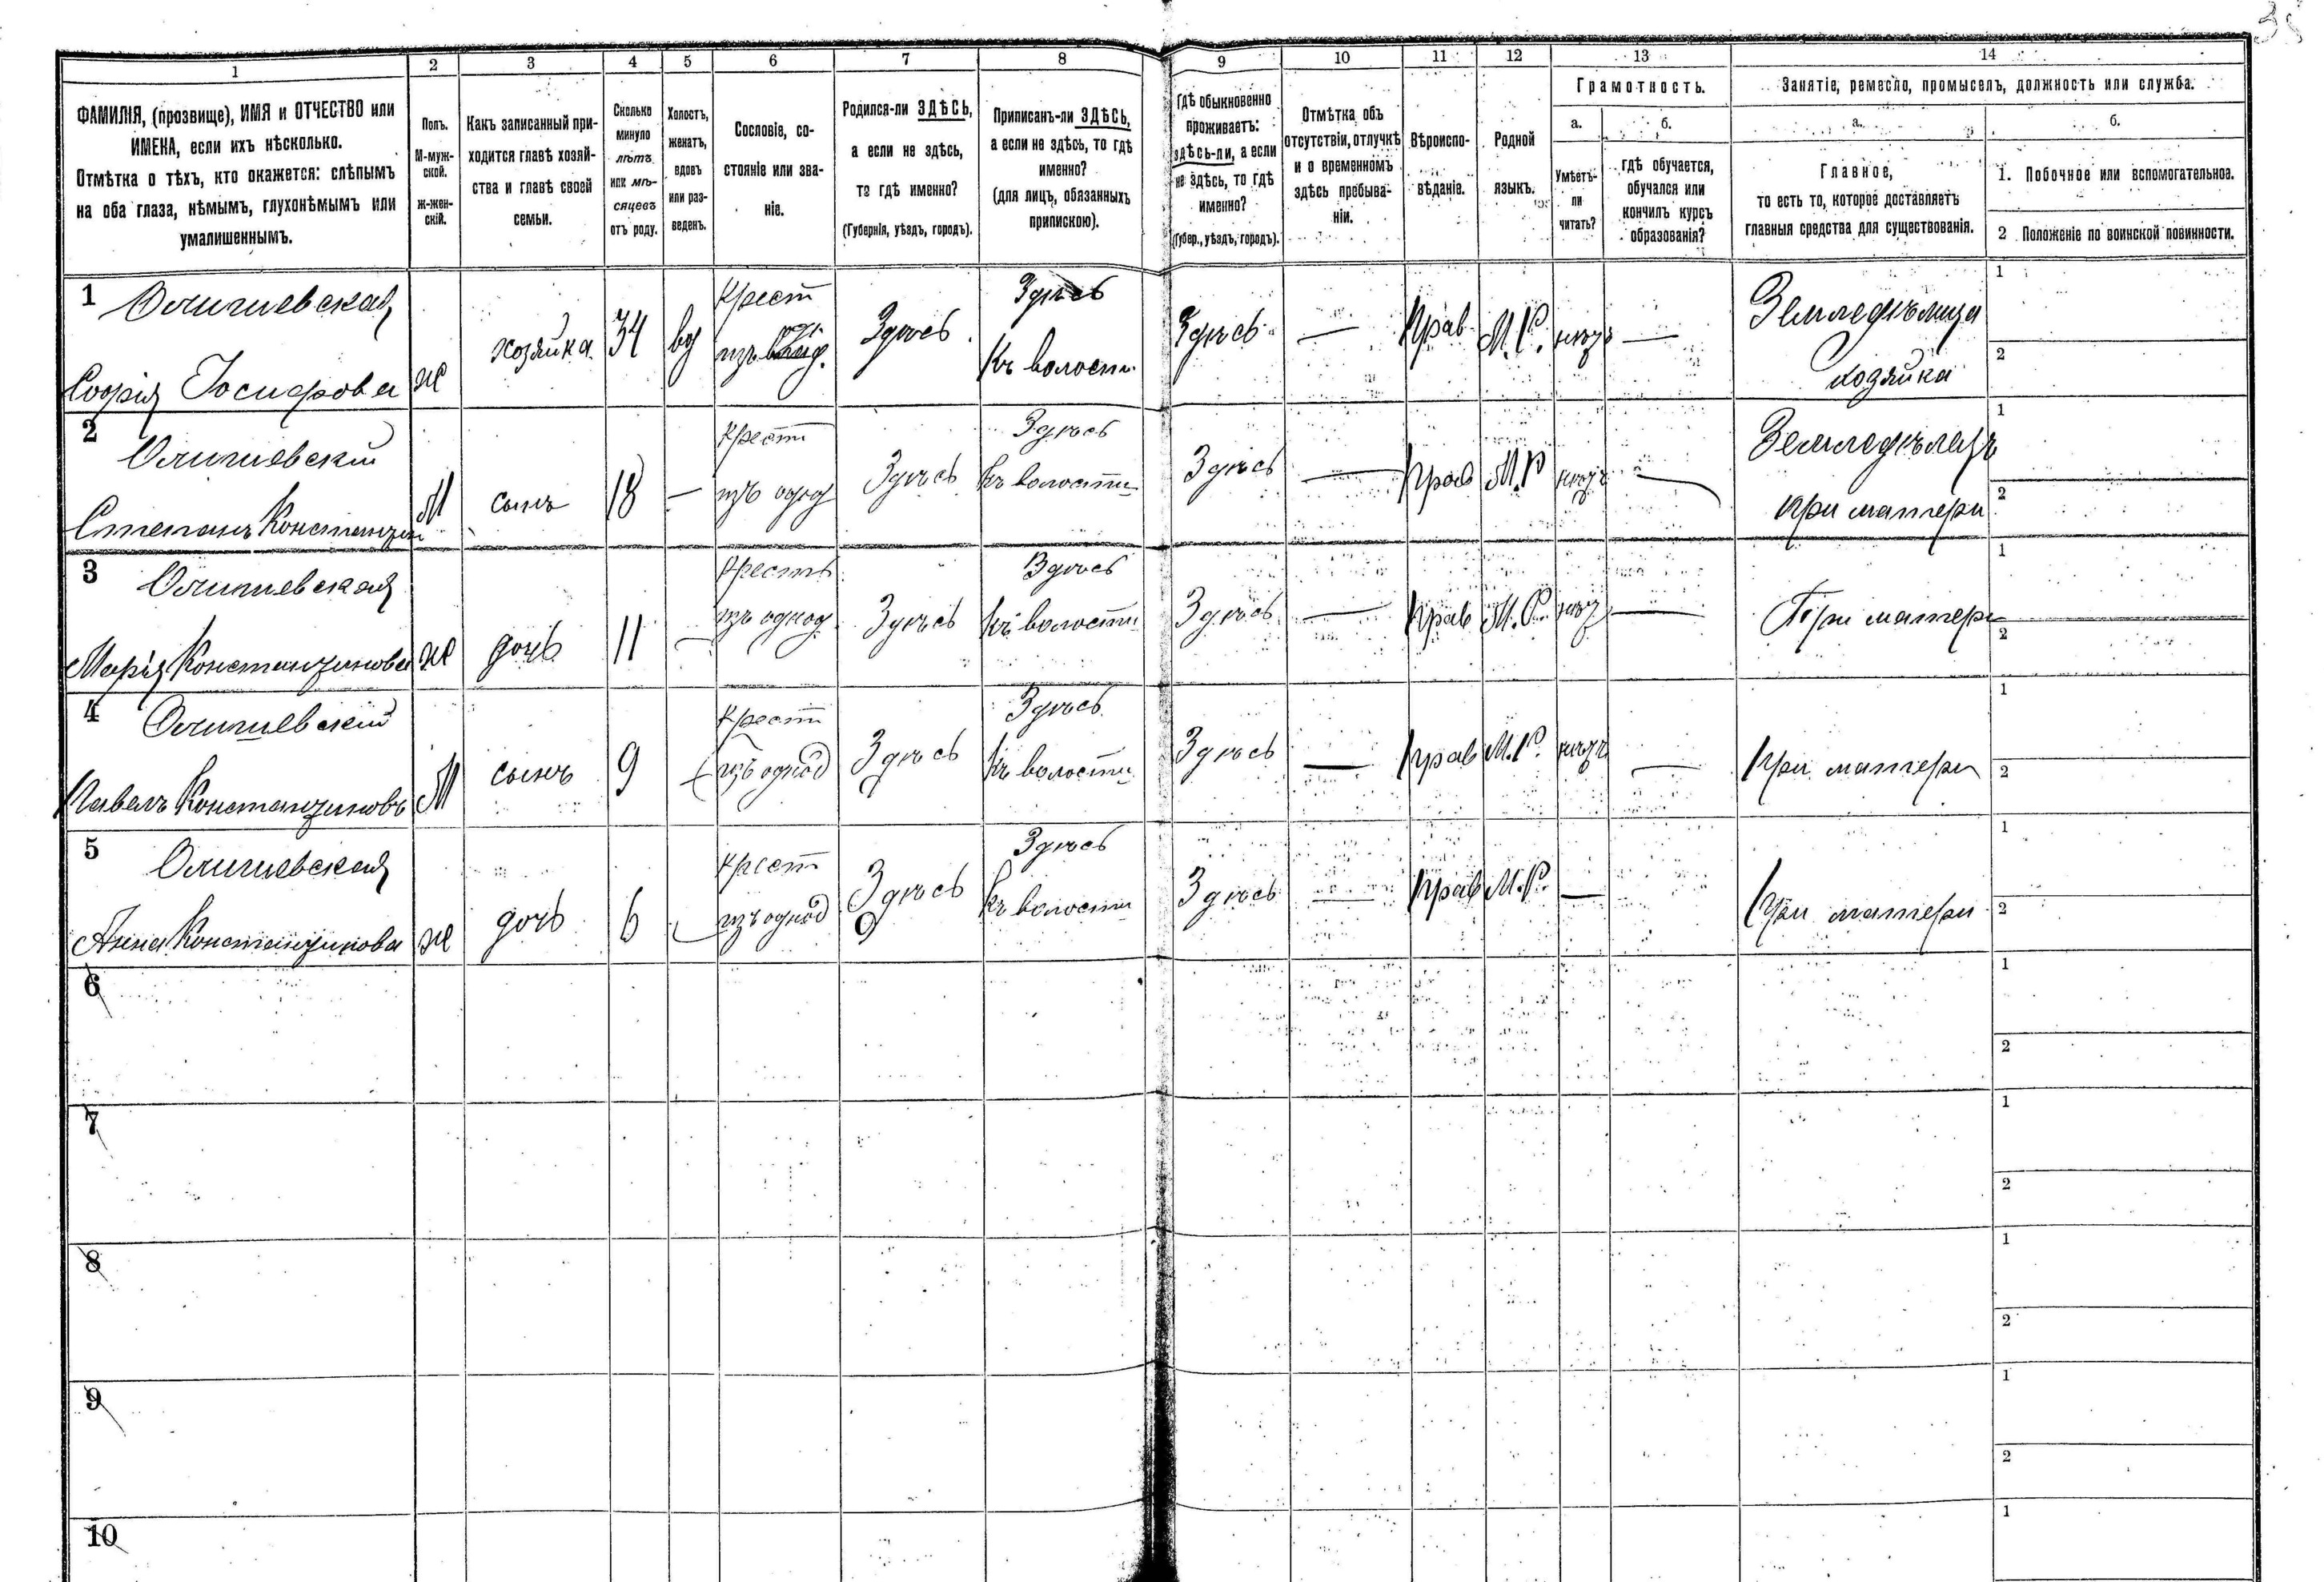 38
1 2 3 4 5 6 7 8 9 10 11 12 13 14
ФАМИЛІЯ, (прозвище), ИМЯ и ОТЧЕСТВО или
ИМЕНА, если ихъ нѣсколько.
Отмѣтка о тѣхъ, кто окажется: слѣпымъ
на оба глаза, нѣмымъ, глухонѣмымъ или
умалишеннымъ.
Полъ.
М-муж-
ской.
ж-жен-
скій.
Какъ записанный при-
ходится главѣ хозяй-
ства и главѣ своей
семьи.
Сколько
минуло
лѣтъ
или мѣ-
сяцевъ
отъ роду.
Холостъ,
женатъ,
вдовъ
или раз-
веденъ.
Сословіе, со-
стояніе или зва-
ніе.
Родился-ли ЗДѢСЬ,
а если не здѣсь,
то гдѣ именно?
(Губернія, уѣздъ, городъ).
Приписанъ-ли ЗДѢСЬ,
а если не здѣсь, то гдѣ
именно?
(для лицъ, обязанныхъ
припискою).
Гдѣ обыкновенно
проживаетъ:
здѣсь-ли, а если
не здѣсь, то гдѣ
именно?
(Губер., уѣздъ, городъ).
Отмѣтка объ
отсутствіи, отлучкѣ
и о временномъ
здѣсь пребыва-
ніи.
Вѣроиспо-
вѣданіе.
Родной
языкъ.
Грамотность.
а.
Умѣетъ-
ли
читать?
б.
гдѣ обучается,
обучался или
кончилъ курсъ
образованія?
Занятіе, ремесло, промыселъ, должность или служба.
а.
Главное,
то есть то, которое доставляетъ
главныя средства для существованія.
б.
1. Побочное или вспомогательное.
2 Положеніе по воинской повинности.
1
Софія Іосифова
ж
хозяйка.
34
вд
Крест
Здѣсь
Здѣсь
Къ волости
Здѣсь
—
Прав
М.Р.
—
Земледѣлица
хозяйка
1
2
2
Степанъ
М
сынъ
18
—
Крест
изъ однод
Здѣсь
Здѣсь
Къ волости
Здѣсь
—
Прав
М.Р
—
при матери
1
2
3
Марія Константинова
ж
дочь
11
—
Крестъ
изъ однод
Здѣсь
Здѣсь
Къ волости
Здѣсь
—
Прав
М.Р.
—
При матери
1
2
4
Павелъ Константиновъ
М
сынъ
9
—
Крест
изъ однод
Здѣсь
Здѣсь
Къ волости
Здѣсь
—
Прав
М.Р.
—
При матери
1
2
5
Анна Константинова
ж
дочь
6
—
Крест
изъ однод
Здѣсь
Здѣсь
Къ волости
Здѣсь
—
Прав
М.Р.
—
При матери
1
2
6
1
2
7
1
2
8
1
2
9
1
2
10
1